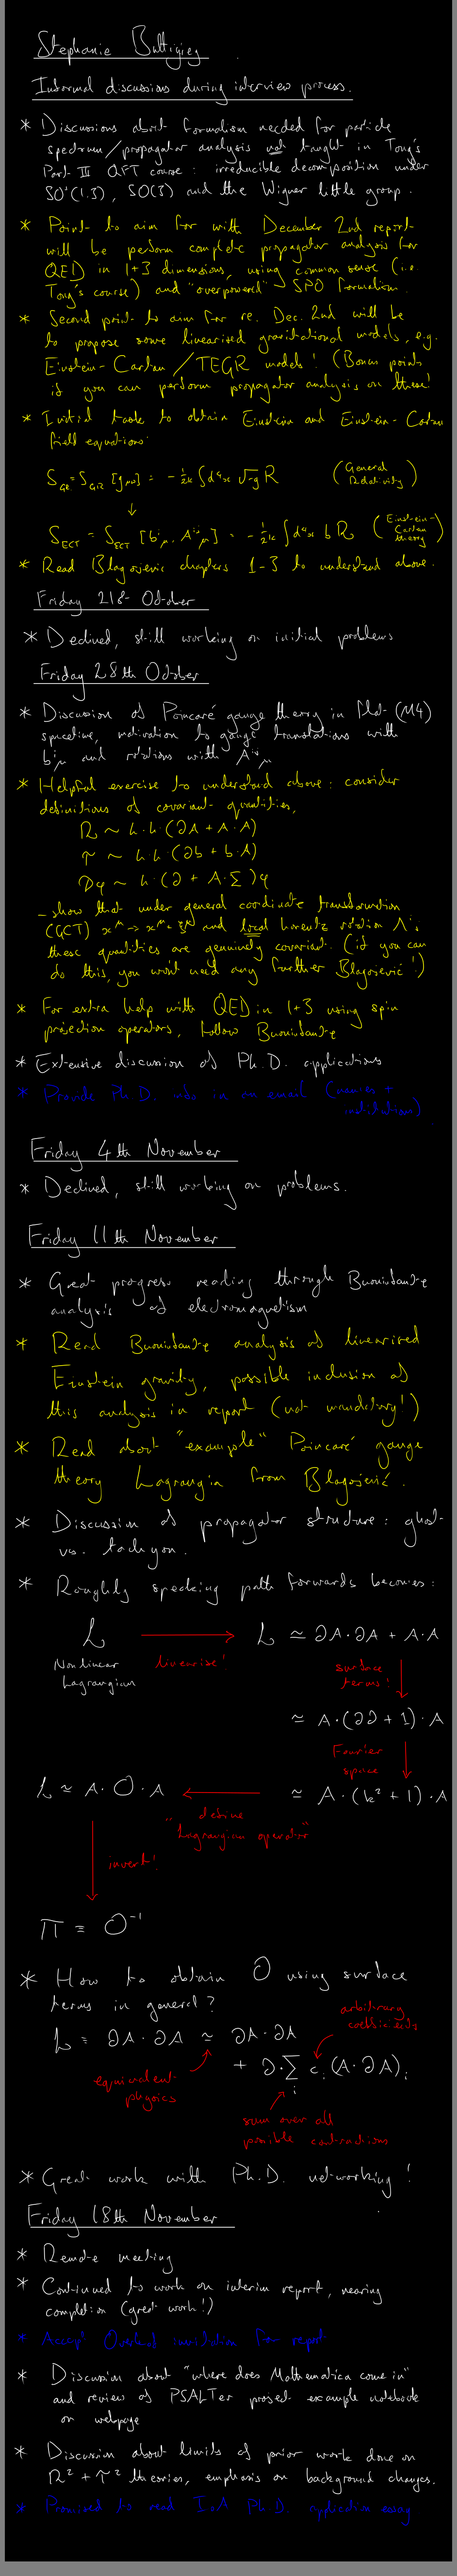 Stephanie Buttigieg
Informal discussions during interview process.
* Discussions about formalism needed for particle
spectrum/propagator analysis not taught in Tong's
Part III QFT course : irreducible decomposition under
SO⁺(1,3), SO(3) and the Wigner little group.
* Point to aim for with December 2nd report
will be perform complete propagator analysis for
QED in 1+3 dimensions, using common sense (i.e.
Tong's course) and "overpowered" SPO formalism.
* Second point to aim for re. Dec. 2nd will be
to propose some linearised gravitational models, e.g.
Einstein-Cartan / TEGR models! (Bonus points
if you can perform propagator analysis on these!
* Initial task to obtain Einstein and Einstein-Cartan
field equations:
S_GR = S_GR [g_μν] = - 1/2κ ∫d⁴x √-g R (General Relativity)
↓
S_ECT = S_ECT [b^i_μ, A^ij_μ] = - 1/2κ ∫d⁴x b R (Einstein-Cartan theory)
* Read Blagojević chapters 1-3 to understand above.
Friday 21st October
* Declined, still working on initial problems
Friday 28th October
* Discussion of Poincaré gauge theory in flat (M4)
spacetime, motivation to gauge translations with
b^i_μ and rotations with A^ij_μ
* Helpful exercise to understand above: consider
definitions of covariant quantities,
R ~ h.h.(∂A + A.A)
T ~ h.h.(∂b + b.A)
Dφ ~ h.(∂ + A.Σ)φ
- show that under general coordinate transformation
(GCT) x^μ → x^μ + ξ^μ and local Lorentz rotation Λ^i_j
these quantities are genuinely covariant. (if you can
do this, you won't need any further Blagojević!)
* For extra help with QED in 1+3 using spin
projection operators, follow Buoninfante
* Extensive discussion of Ph.D. applications
* Provide Ph.D. info in an email (names +
institution)
Friday 4th November
* Declined, still working on problems.
Friday 11th November
* Great progress reading through Buoninfante
analysis of electromagnetism
* Read Buoninfante analysis of linearised
Einstein gravity, possible inclusion of
this analysis in report (not mandatory!)
* Read about "example" Poincaré gauge
theory Lagrangian from Blagojević.
* Discussion of propagator structure: ghost
vs. tachyon.
* Roughly speaking path forwards becomes:
L → L ≃ ∂A.∂A + A.A
Nonlinear Lagrangian
linearise!
surface terms!
≃ A.(∂∂ + 1).A
Fourier space
L ≃ A.O.A ← ≃ A.(k² + 1).A
define "Lagrangian operator"
invert!
Π ≡ O⁻¹
* How to obtain O using surface
terms in general?
L = ∂A.∂A ≃ ∂A.∂A
+ ∂.Σ_i c_i (A.∂A)_i
arbitrary coefficients
equivalent physics
sum over all
possible contractions
* Great work with Ph.D. networking!
Friday 18th November
* Remote meeting
* Continued to work on interim report, nearing
completion (great work!)
* Accept Overleaf invitation for report
* Discussion about "where does Mathematica come in"
and review of PSALTer project example notebook
on webpage
* Discussion about limits of prior work done on
R² + T² theories, emphasis on background changes.
* Promised to read IoA Ph.D application essay